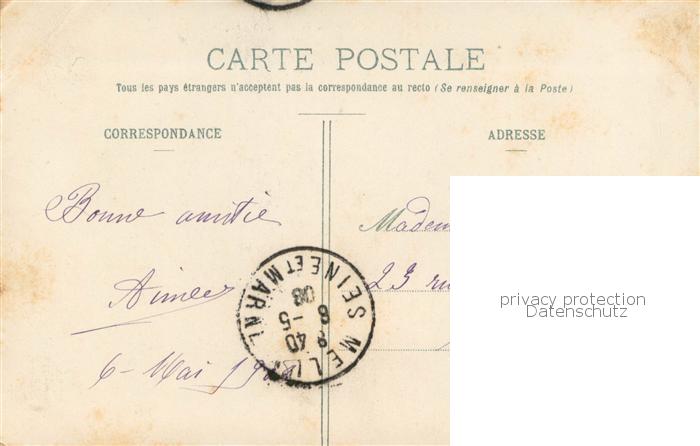 CARTE POSTALE
Tous les pays étrangers n'acceptent pas la correspondance au recto (Se renseigner à la Poste)
CORRESPONDANCE
ADRESSE
Bonne amitié
Madem
Aimée
23 ru
6 - Mai
MELUN
SEINE ET MARNE
8 -5
08
privacy protection
Datenschutz